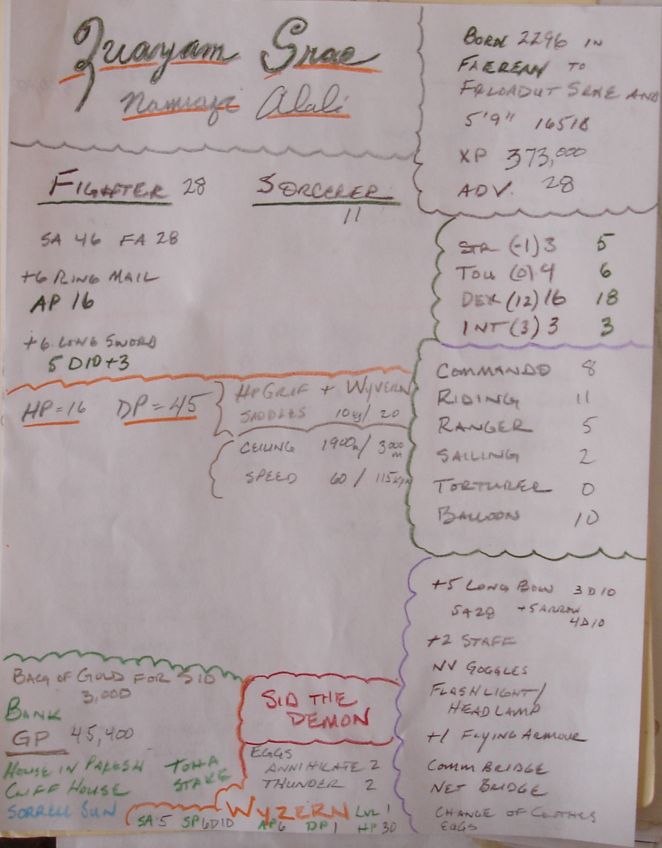 Zuayam Srae
Alali
FIGHTER 28
SORCERER
11
SA 46 FA 28
+6 RING MAIL
AP 16
+6 LONG SWORD
5 D10+3
HP=16 DP=45
HPGRIF + WYVERN
SADDLES 10 / 20
CEILING 1900m/ 3000
m
SPEED 60 / 115
BORN 2296 IN
TO
AND
5'9" 165lB
XP 373,000
ADV. 28
STR (-1) 3 5
TOU (0) 4 6
DEX (12) 16 18
INT (3) 3 3
COMMANDO 8
RIDING 11
RANGER 5
SAILING 2
TORTURER 0
BALLOON 10
+5 LONG BOW 3D10
SA28 +5 ARROW
4D10
+2 STAFF
NV GOGGLES
FLASHLIGHT/
HEADLAMP
+1 FLYING ARMOUR
COMM BRIDGE
NET BRIDGE
CHANGE OF CLOTHES
EGGS
BAG OF GOLD FOR SID
3,000
BANK
GP 45,400
HOUSE IN
CLIFF HOUSE
TOHA
STAKE
SORRELL SUN
SID THE
DEMON
EGGS
ANNIHILATE 2
THUNDER 2
WYZERN LVL 1
SA 5 SP 6D10 AP6 DP 1 HP 30